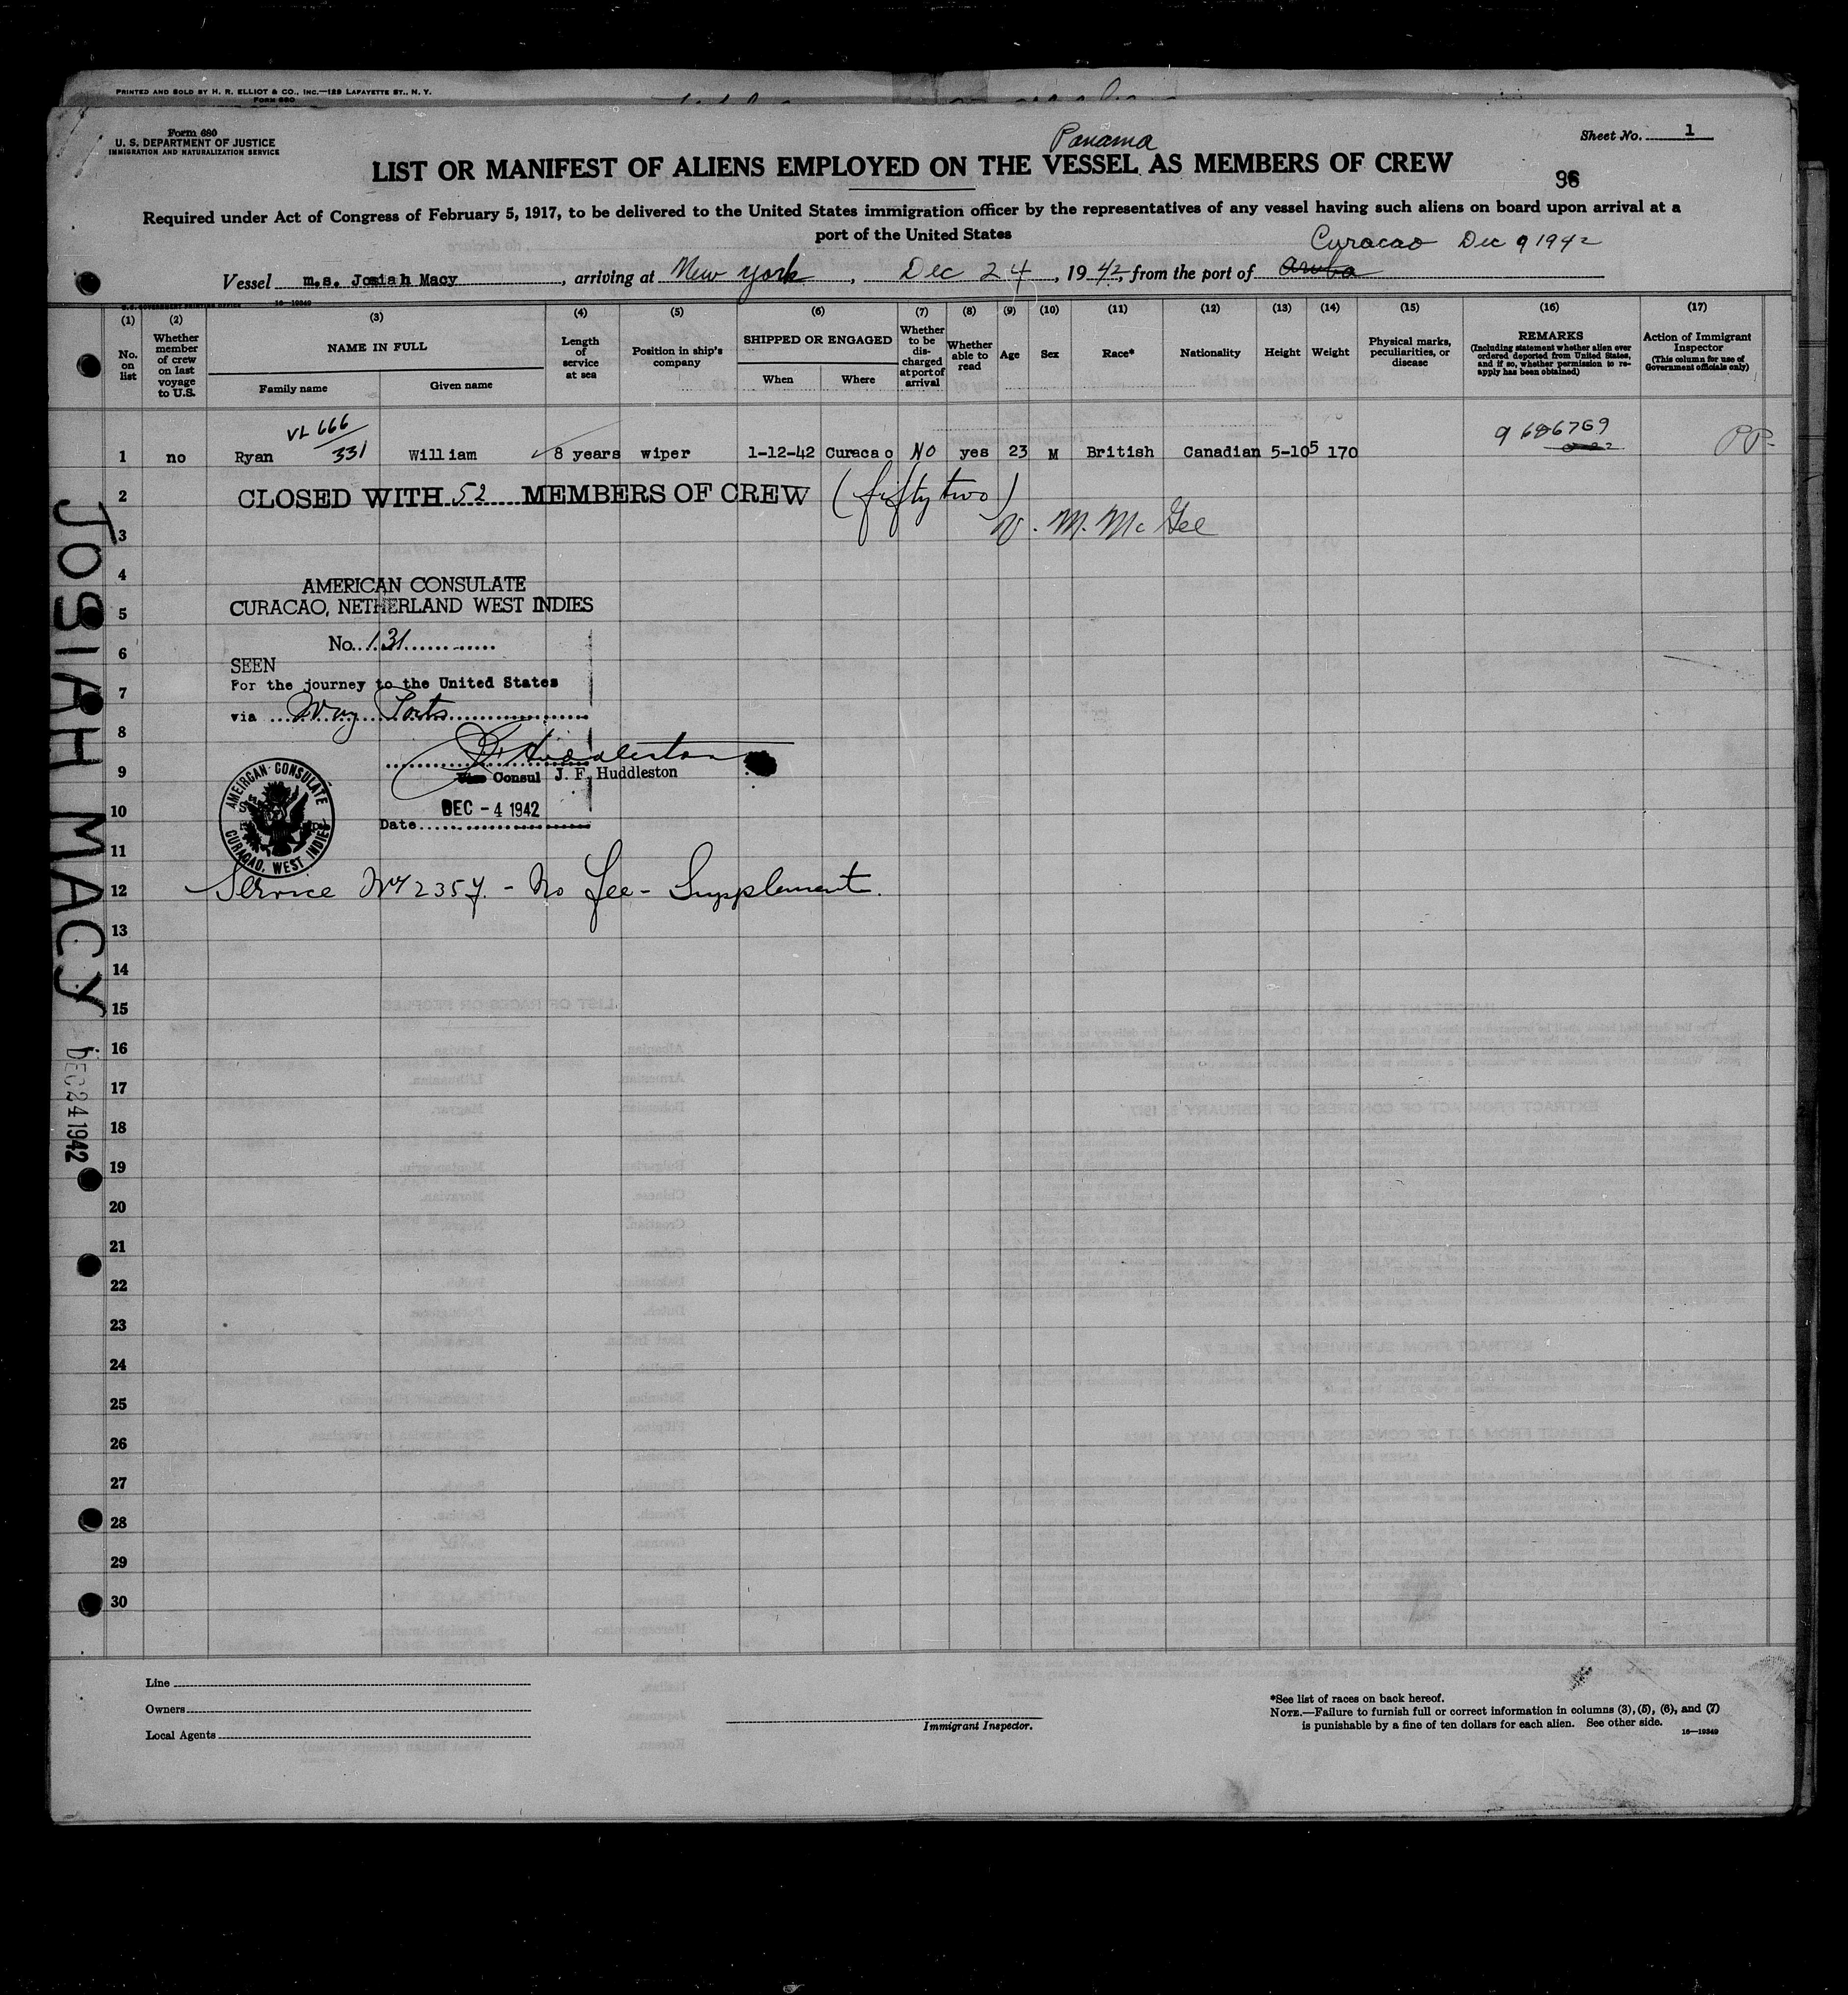 PRINTED AND SOLD BY H. R. ELLIOT & CO., INC.—129 LAFAYETTE ST., N. Y.
FORM 680
Form 680
U. S. DEPARTMENT OF JUSTICE
IMMIGRATION AND NATURALIZATION SERVICE
Sheet No. 1
Panama
LIST OR MANIFEST OF ALIENS EMPLOYED ON THE VESSEL AS MEMBERS OF CREW
96
Required under Act of Congress of February 5, 1917, to be delivered to the United States immigration officer by the representatives of any vessel having such aliens on board upon arrival at a
port of the United States
Curacao Dec 9 1942
Vessel m.s. Josiah Macy, arriving at New york, Dec 24, 1942, from the port of Aruba
U.S. GOVERNMENT PRINTING OFFICE 16—19349
(1) No. on list
(2) Whether member of crew on last voyage to U.S.
(3) NAME IN FULL
Family name
Given name
(4) Length of service at sea
(5) Position in ship's company
(6) SHIPPED OR ENGAGED
When
Where
(7) Whether to be discharged at port of arrival
(8) Whether able to read
(9) Age
(10) Sex
(11) Race*
(12) Nationality
(13) Height
(14) Weight
(15) Physical marks, peculiarities, or disease
(16) REMARKS
(Including statement whether alien ever ordered deported from United States, and if so, whether permission to reapply has been obtained)
(17) Action of Immigrant Inspector
(This column for use of Government officials only)
VL 666
331
9 686769
1 no Ryan William 8 years wiper 1-12-42 Curacao NO yes 23 M British Canadian 5-105 170 PP-
2 CLOSED WITH 52 MEMBERS OF CREW (fifty two)
3 V. M. McGee
4 AMERICAN CONSULATE
5 CURACAO, NETHERLAND WEST INDIES
6 No. 131
SEEN
7 For the journey to the United States
via Way Ports
8
9 Consul J. F. Huddleston
AMERICAN CONSULATE
CURACAO, WEST INDIES
10 DEC -4 1942
Date
11
12 Service No 2357 - No fee - Supplement.
13
14
15
16
17
18
19
20
21
22
23
24
25
26
27
28
29
30
JOSIAH MACY
DEC 24 1942
Line
Owners
Local Agents
Immigrant Inspector.
*See list of races on back hereof.
NOTE.—Failure to furnish full or correct information in columns (3), (5), (6), and (7)
is punishable by a fine of ten dollars for each alien. See other side.
16—19349